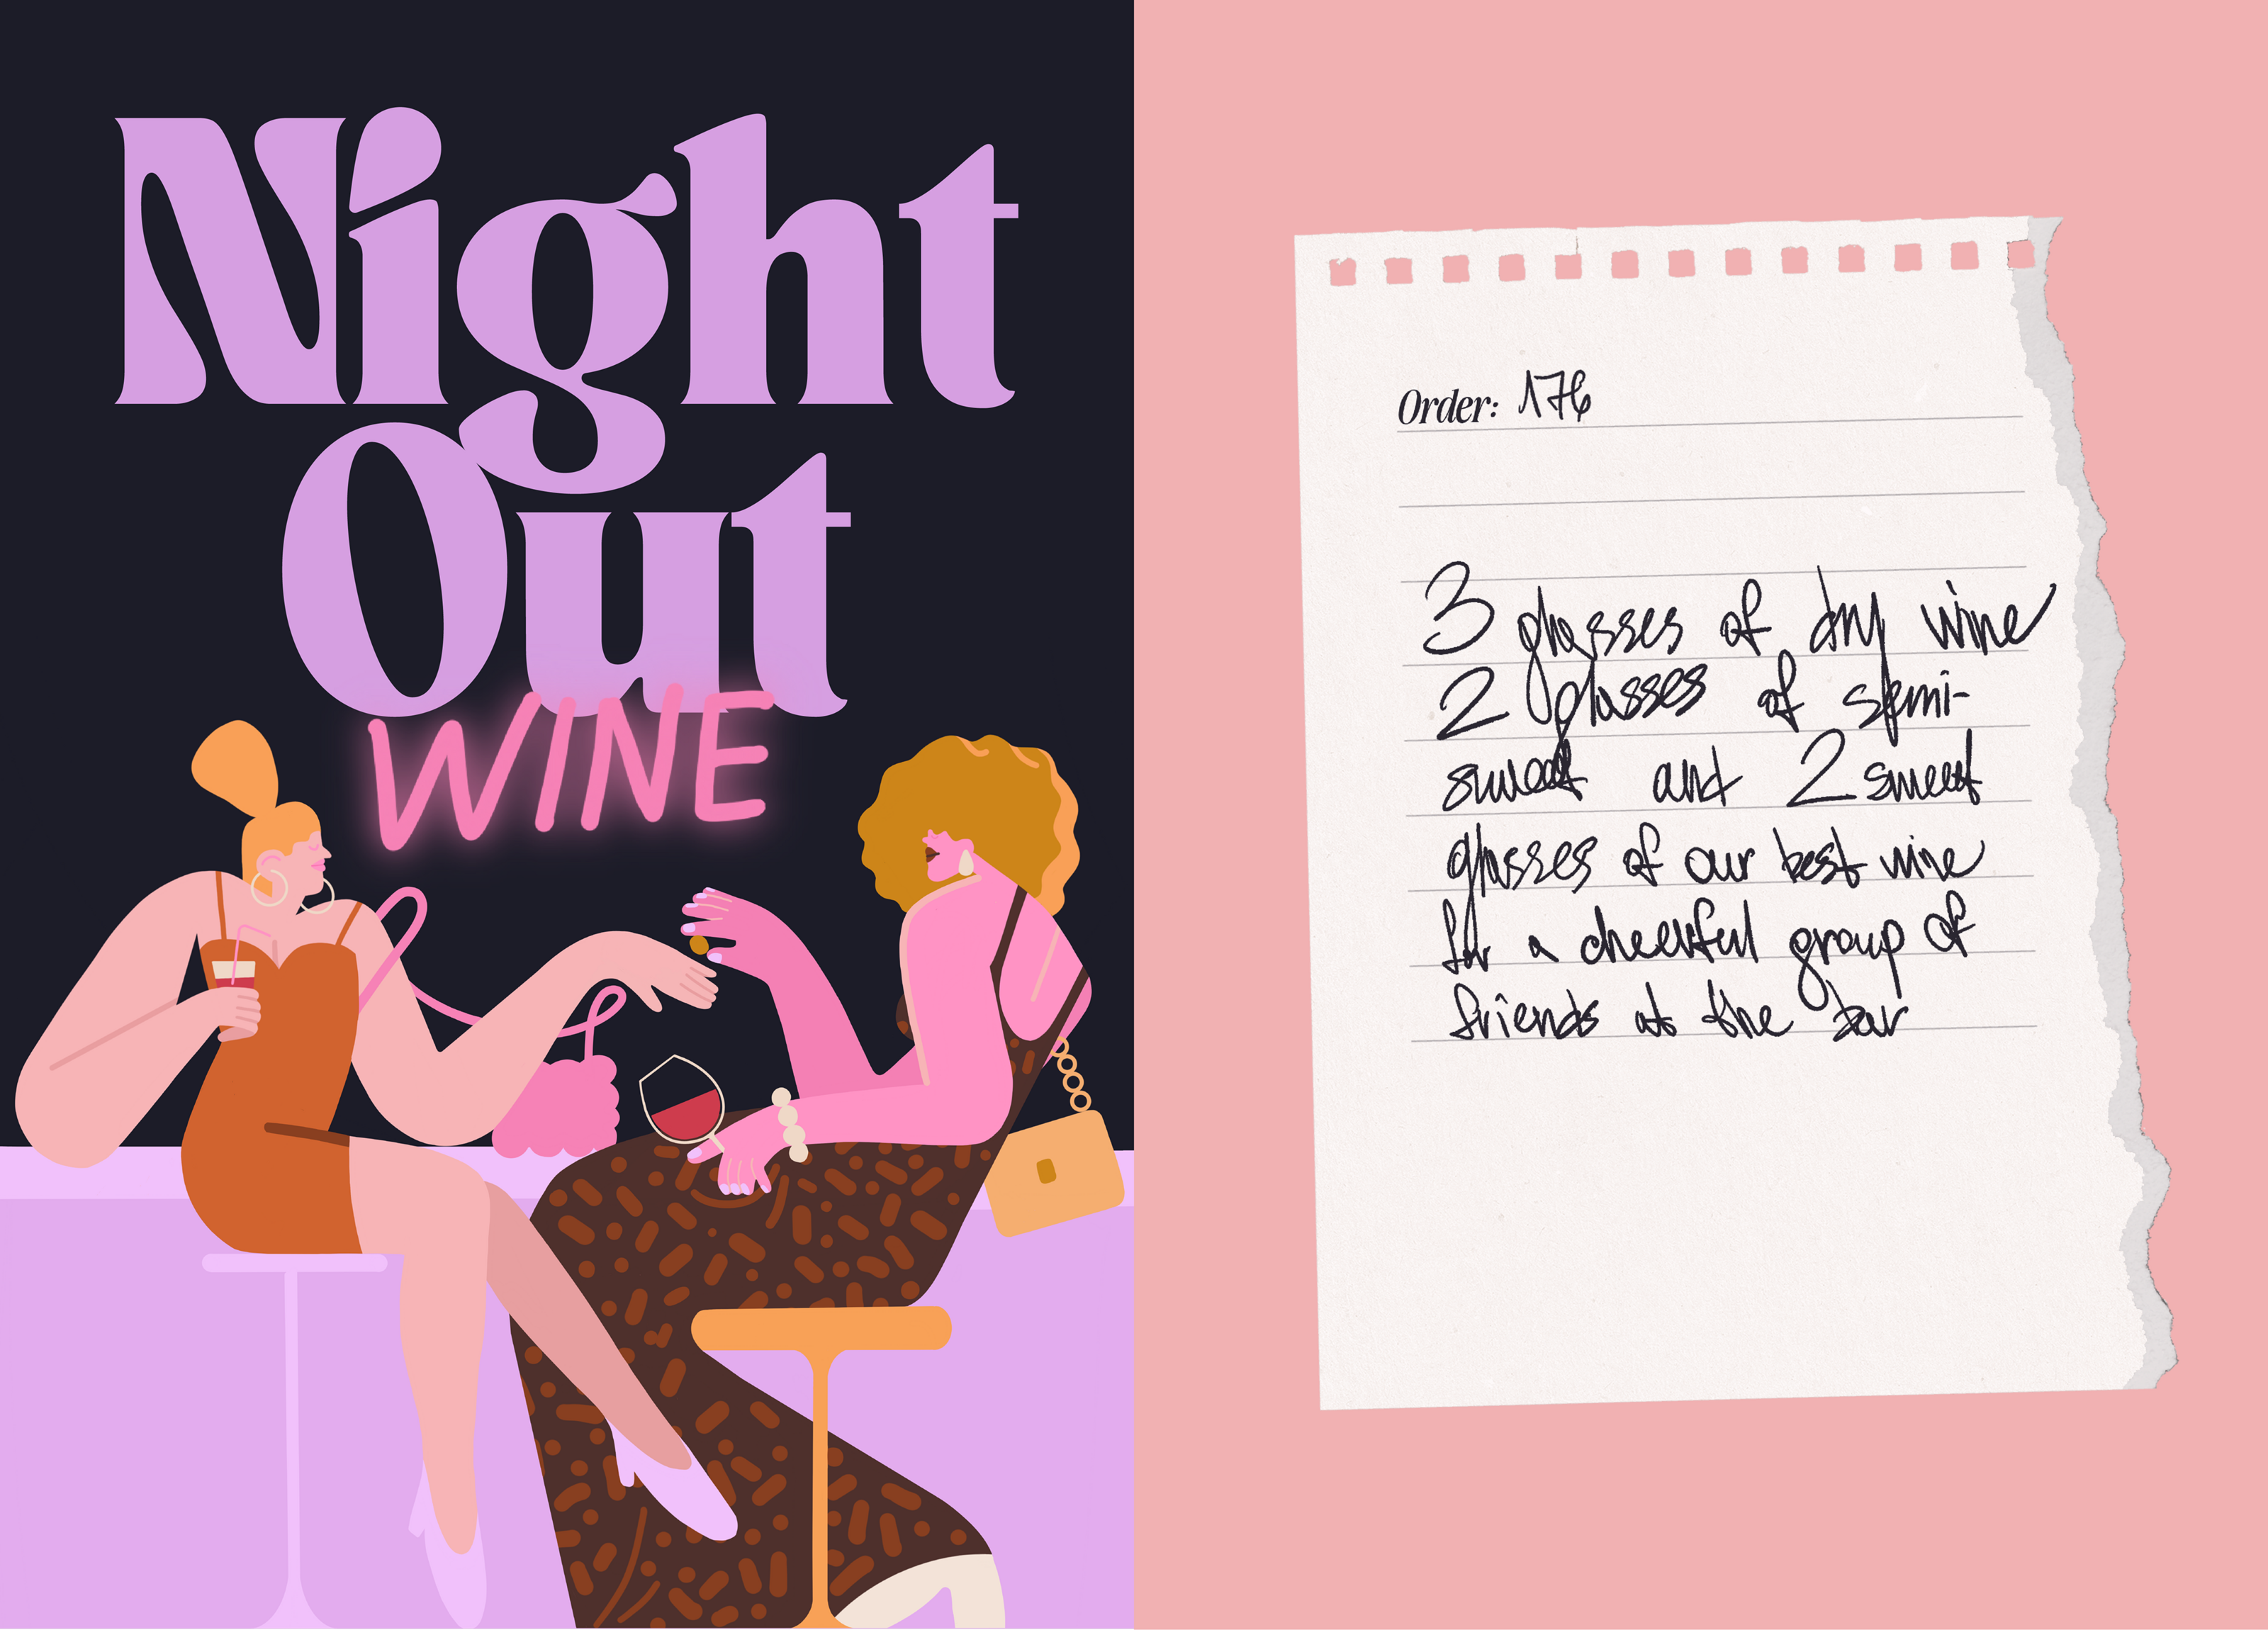 Night
Out
WINE
Order: 176
3 glasses of dry wine
2 glasses of semi-
sweet and 2 sweet
glasses of our best wine
for a cheerful group of
friends at the bar